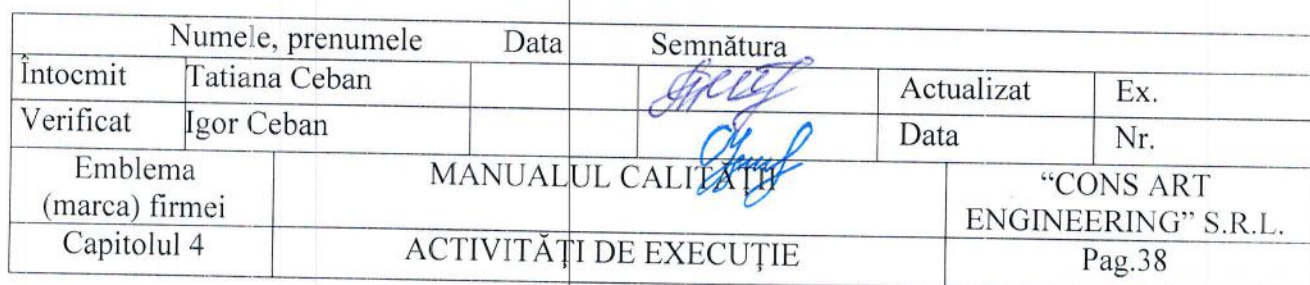 Numele, prenumele Data Semnătura
Întocmit Tatiana Ceban Actualizat Ex.
Verificat Igor Ceban Data Nr.
Emblema MANUALUL CALITĂȚII "CONS ART
(marca) firmei ENGINEERING" S.R.L.
Capitolul 4 ACTIVITĂȚI DE EXECUȚIE Pag.38